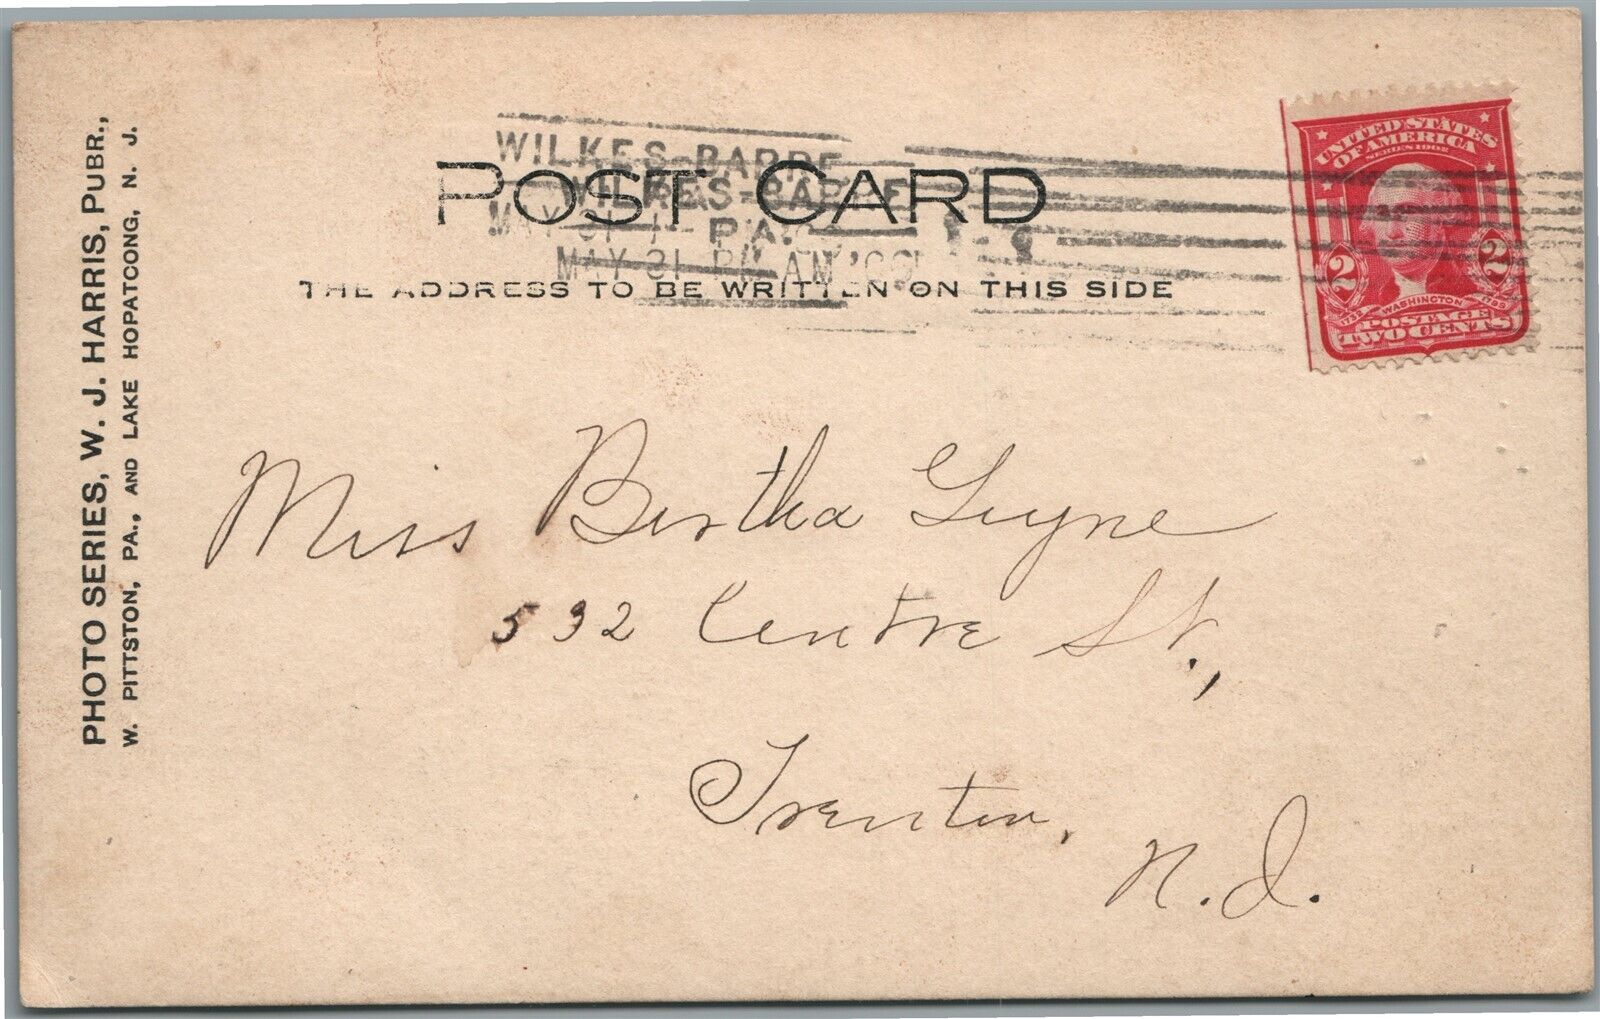 PHOTO SERIES, W. J. HARRIS, PUBR.,
W. PITTSTON, PA., AND LAKE HOPATCONG, N. J.
WILKES-BARRE,
WILKES-BARRE
PA.
MAY 31
MAY 31 AM
POST CARD
THE ADDRESS TO BE WRITTEN ON THIS SIDE
UNITED STATES
OF AMERICA
SERIES 1902
2 2
1732 WASHINGTON 1799
POSTAGE
TWO CENTS
Miss Bertha
532 Centre St.,
Trenton,
N.J.